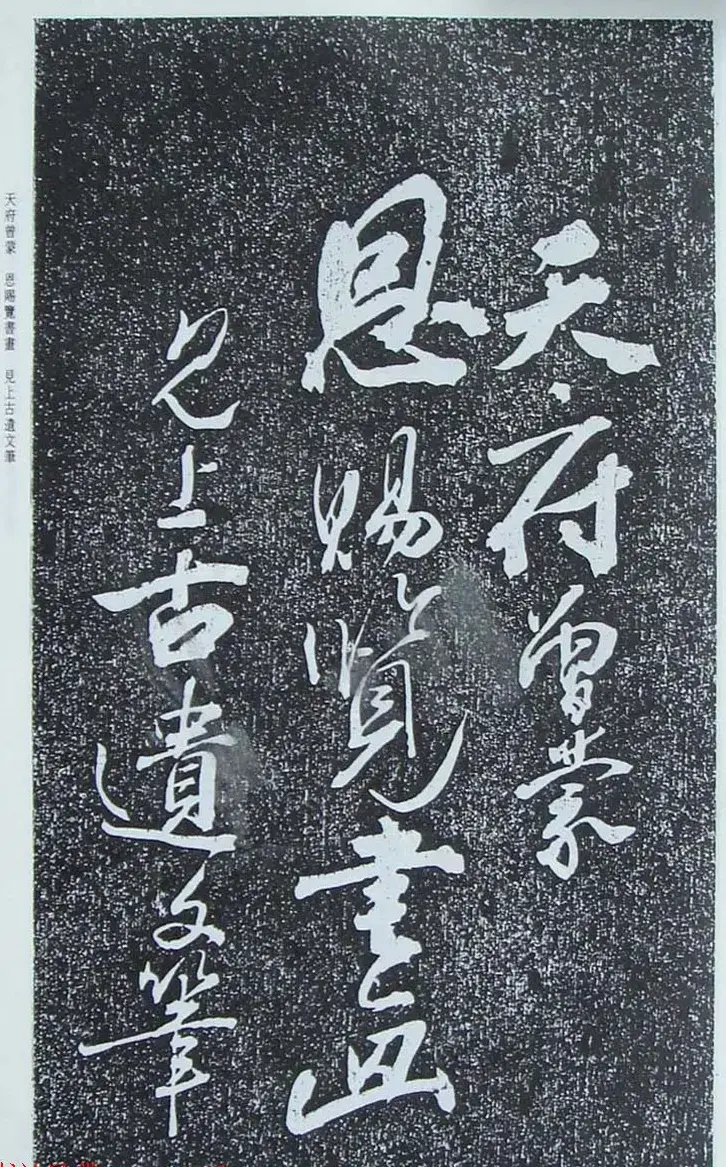 天府曾蒙
恩賜覽書畫
見上古遺文筆
天府曾蒙　恩賜覽書畫　見上古遺文筆